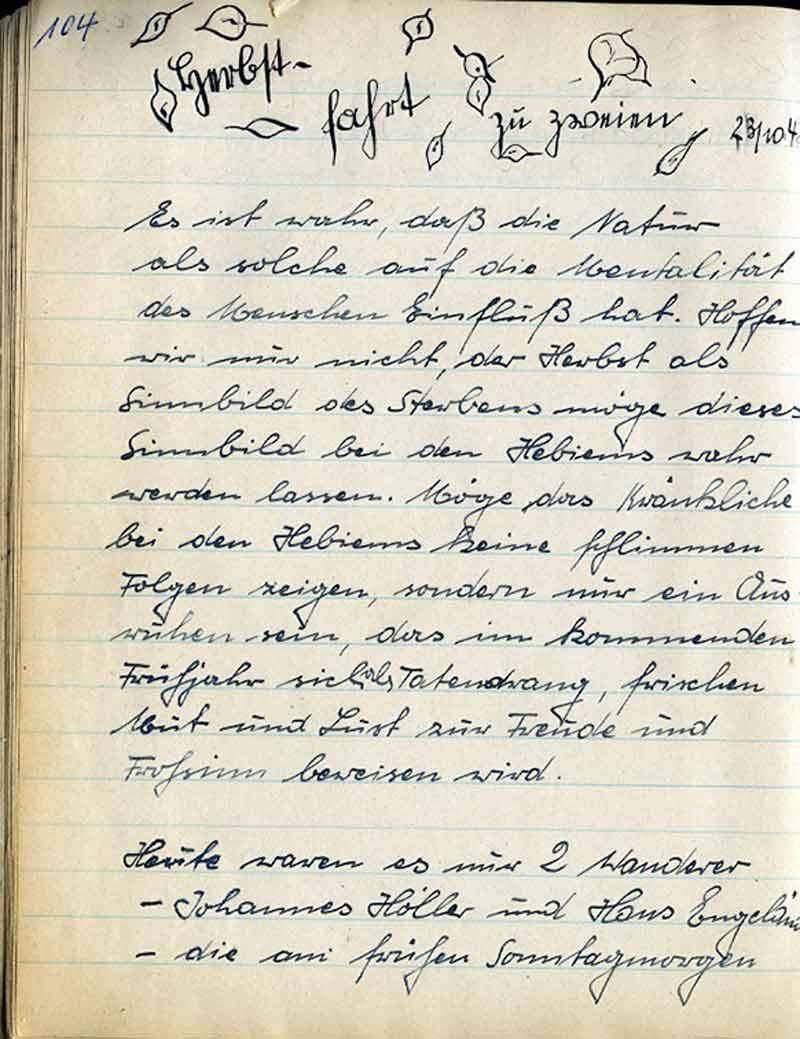 104
Herbst-
fahrt
zu zweien
23/10 4
Es ist wahr, daß die Natur
als solche auf die Mentalität
des Menschen Einfluß hat. Hoffen
wir nur nicht, der Herbst als
Sinnbild des Sterbens möge dieses
Sinnbild bei den Hebiems wahr
werden lassen. Möge das Kränkliche
bei den Hebiems keine schlimmen
Folgen zeigen, sondern nur ein Aus-
ruhen sein, das im kommenden
Frühjahr sich als Tatendrang, frischen
Mut und Lust zur Freude und
Frohsinn beweisen wird.
Heute waren es nur 2 Wanderer
- Johannes Höller und Hans Engelän
- die am frühen Sonntagmorgen